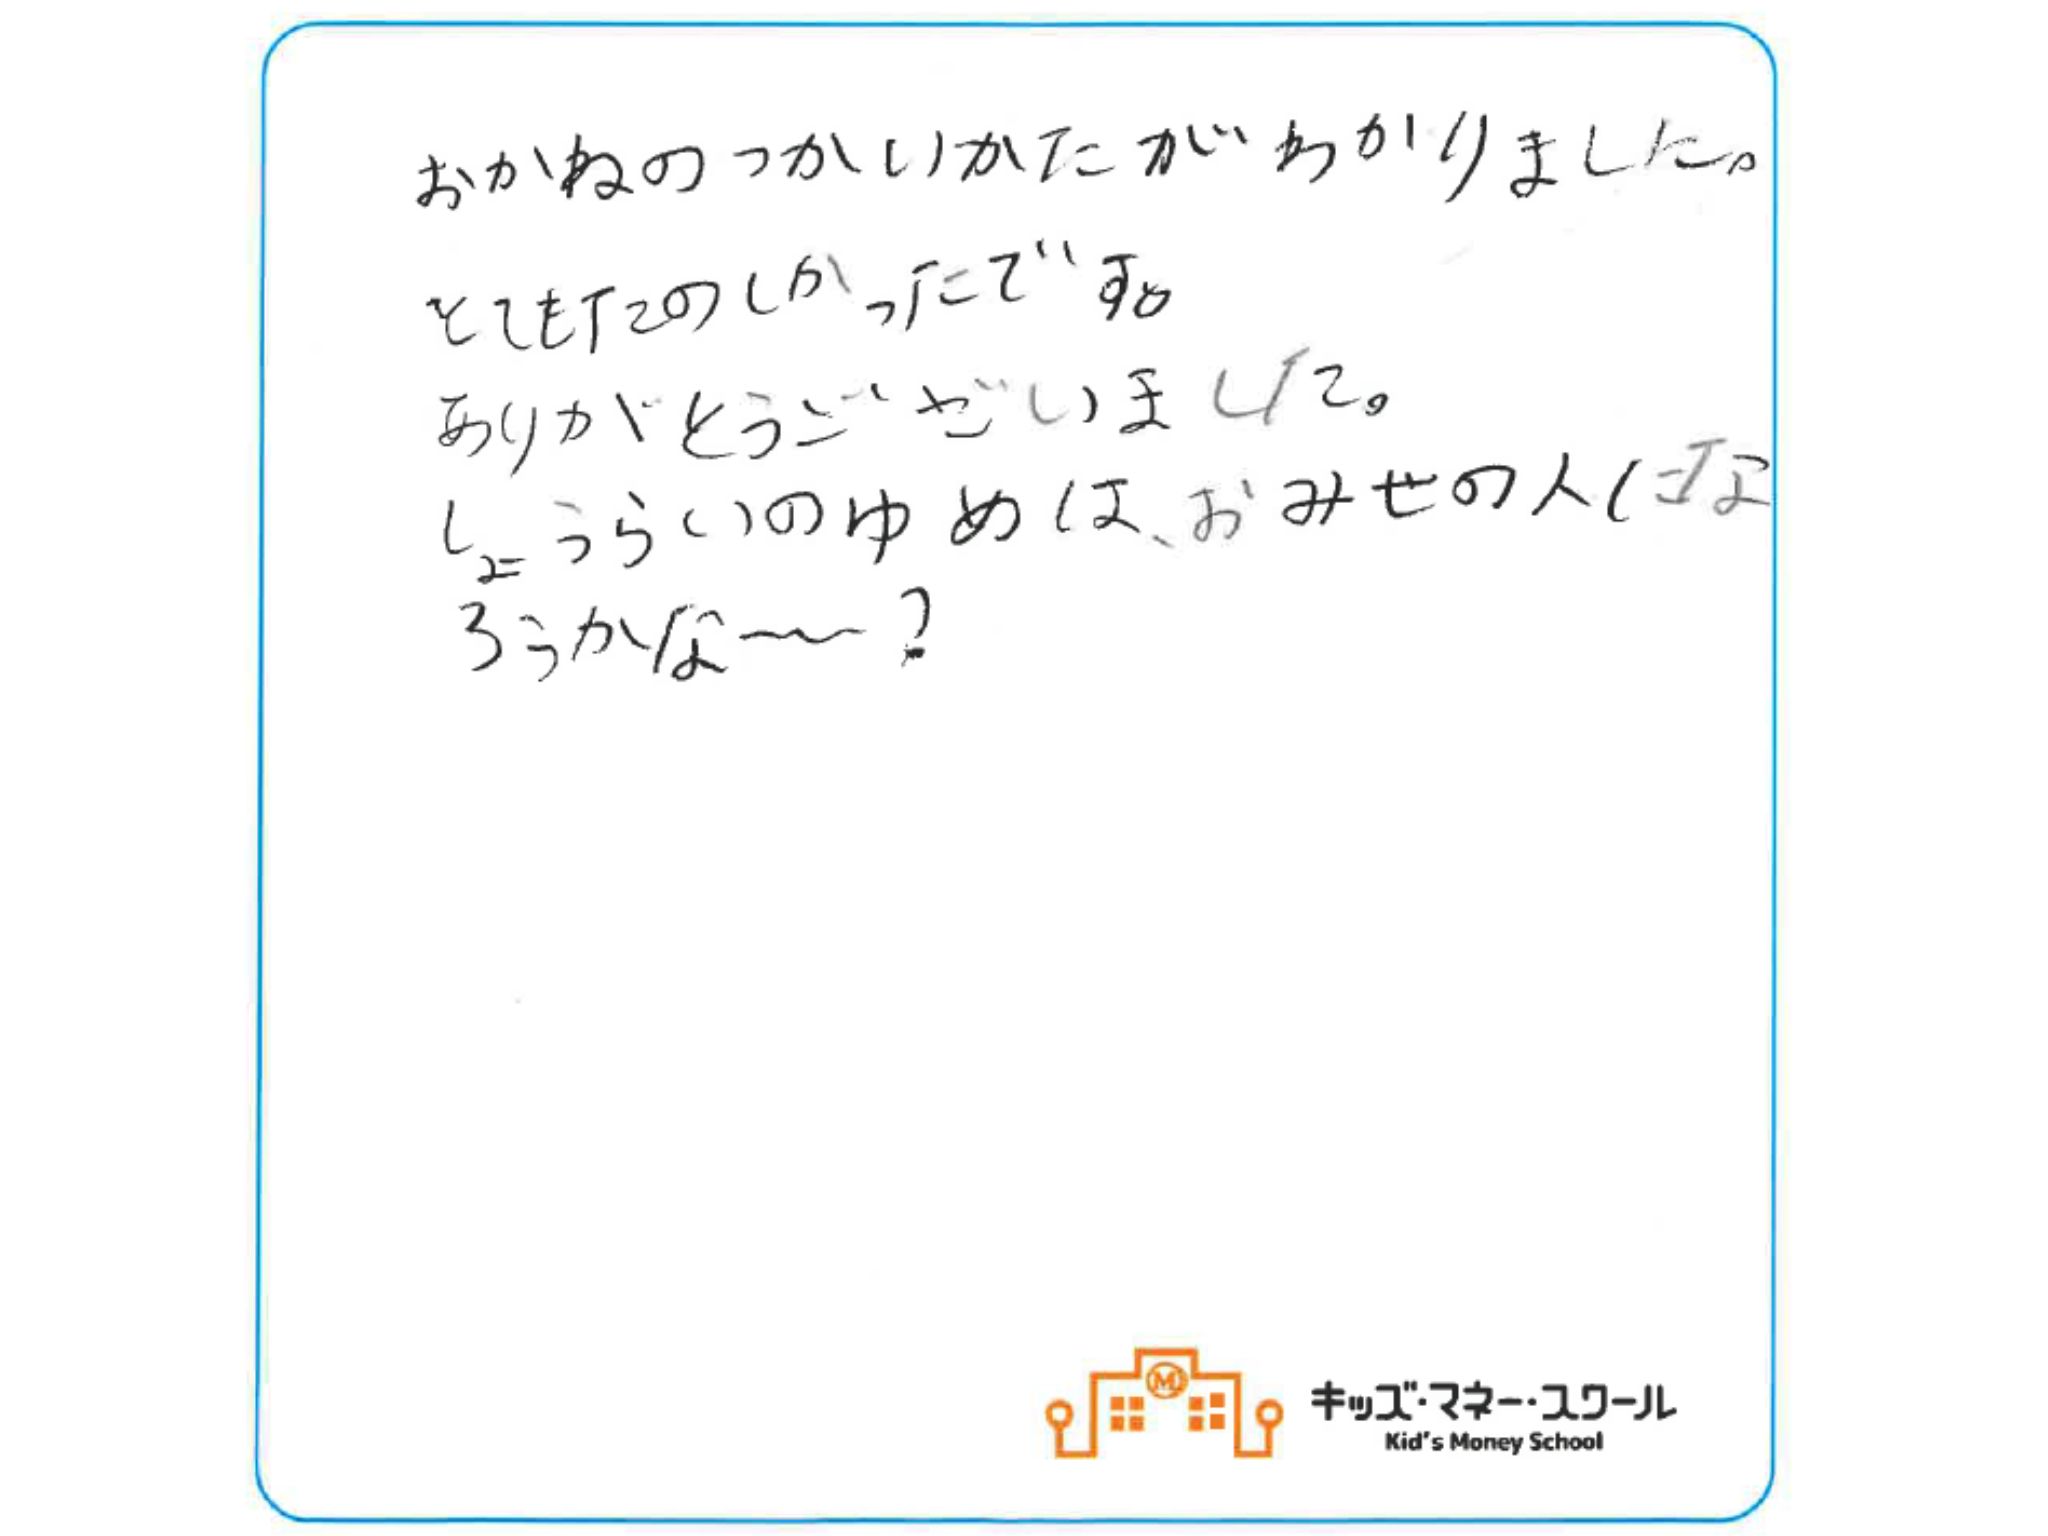 おかねのつかいかたがわかりました。
とてもたのしかったです。
ありがとうございました。
しょうらいのゆめは、おみせの人にな
ろうかな〜〜?
キッズ・マネー・スクール
Kid's Money School